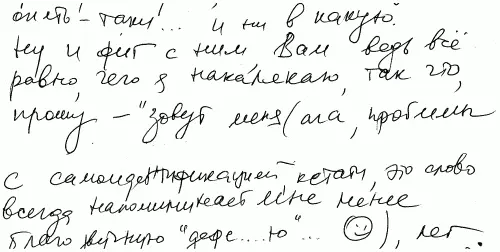 опять-таки!... и ни в какую.
Ну и фиг с ним, Вам ведь всё
равно, чего я накалякаю, так что,
прошу – "зовут меня (ага, проблемы
с самоидентификацией кстати, это слово
всегда напоминает мне менее
благозвучную "дефе.....ю"... ☺), лет